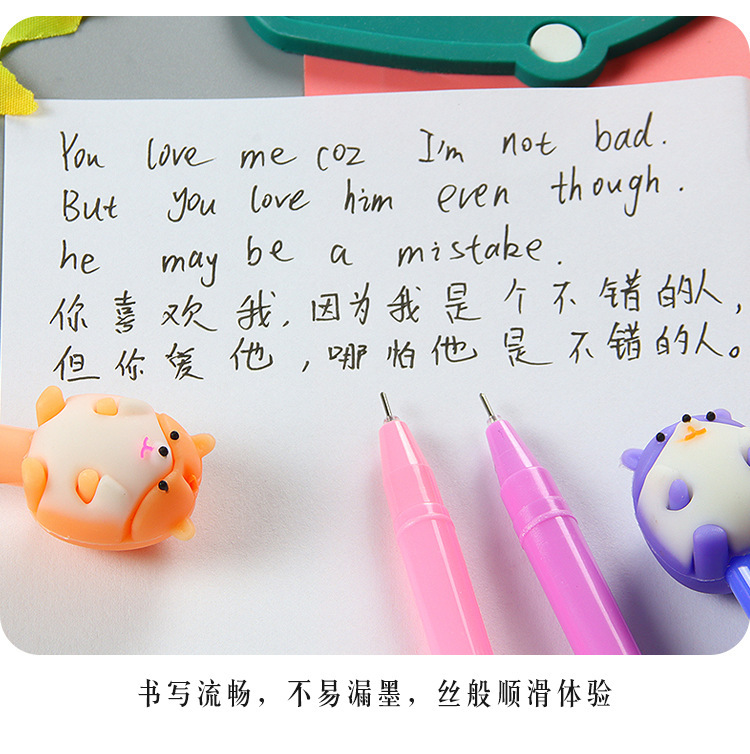 You love me coz I'm not bad.
But you love him even though.
he may be a mistake.
你喜欢我,因为我是个不错的人,
但你爱他,哪怕他是不错的人。
书写流畅，不易漏墨，丝般顺滑体验